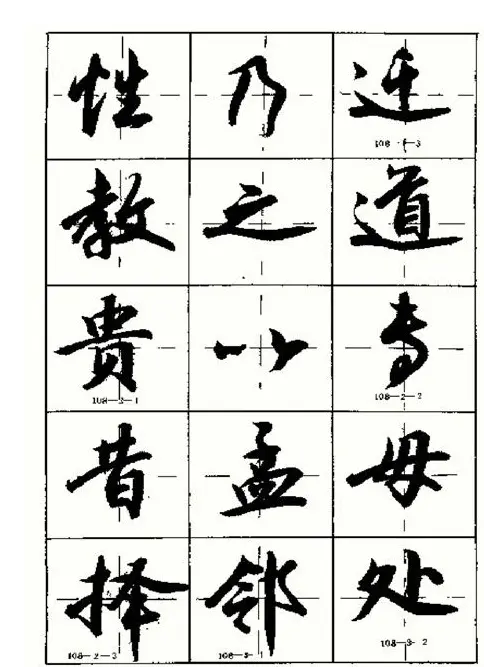 性乃迁
教之道
贵以专
昔孟母
择邻处
108-1-3
108-2-1
108-2-2
108-2-3
108-3-1
108-3-2